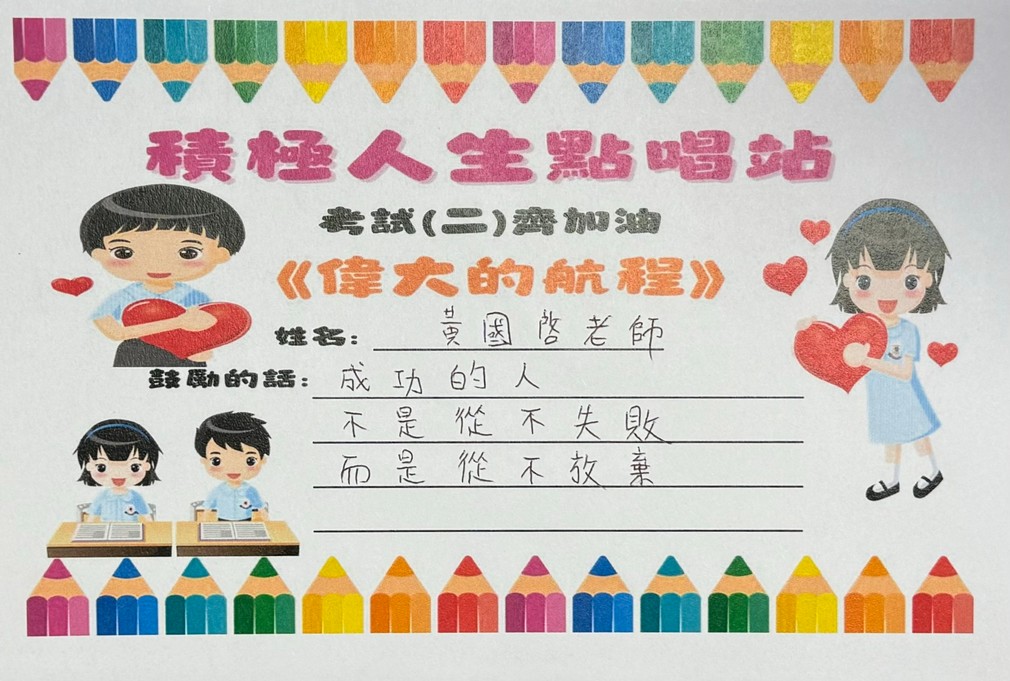 積極人生點唱站
考試(二)齊加油
《偉大的航程》
姓名: 黃國啓老師
鼓勵的話: 成功的人
不是從不失敗
而是從不放棄